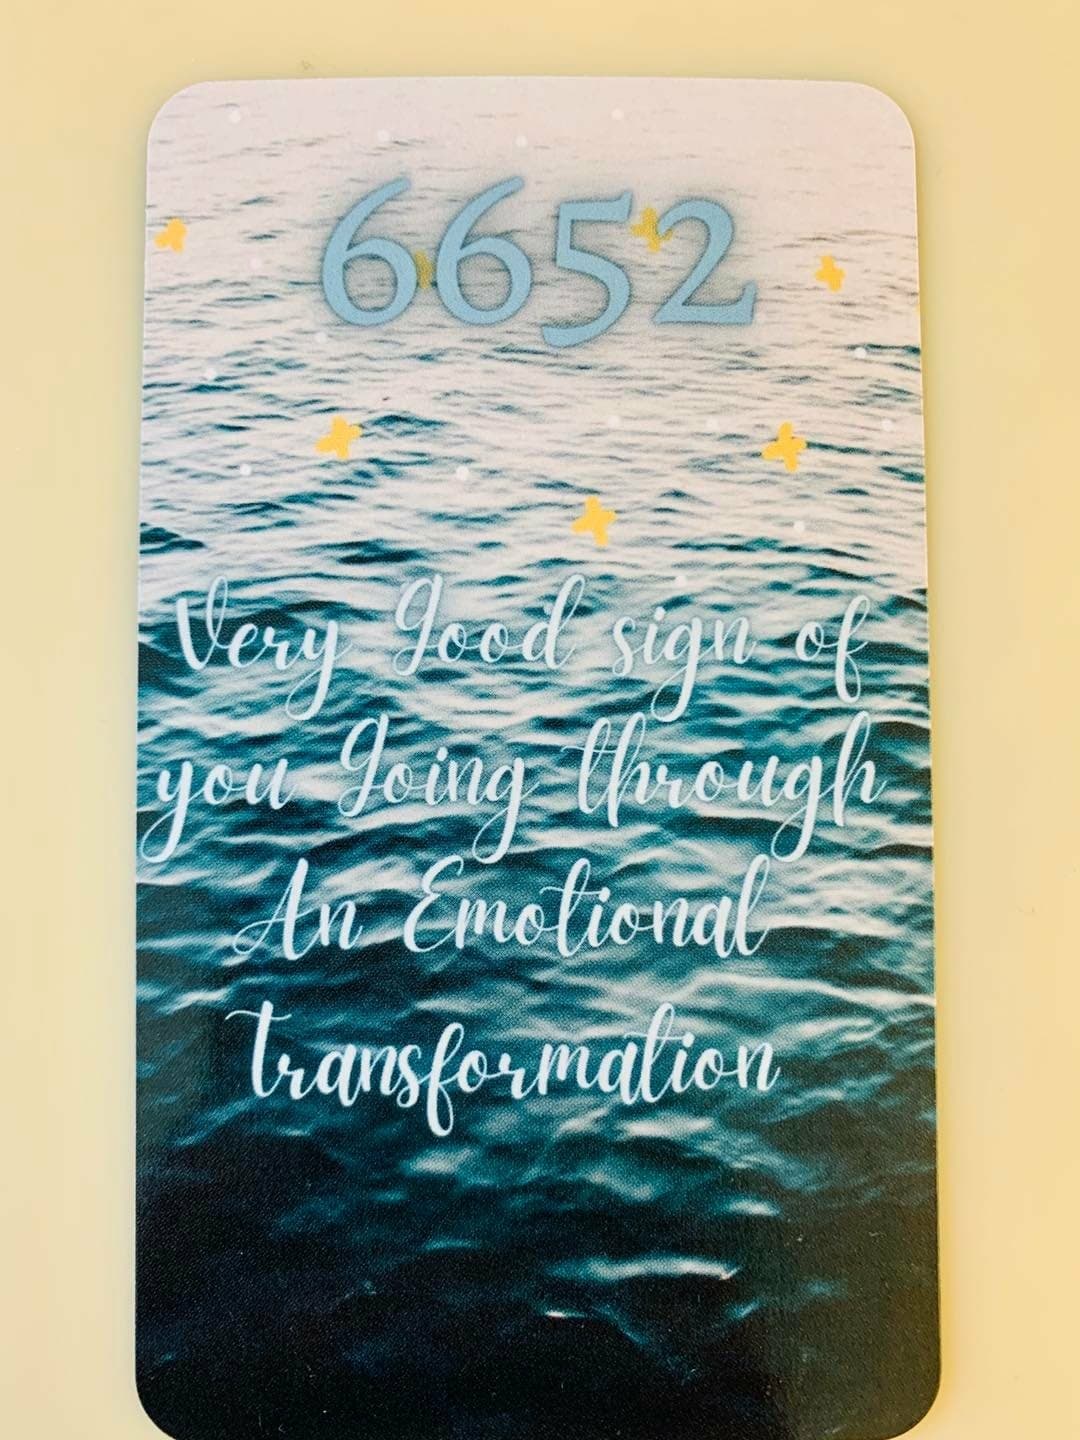 6652
Very Good sign of
you Going through
An Emotional
transformation